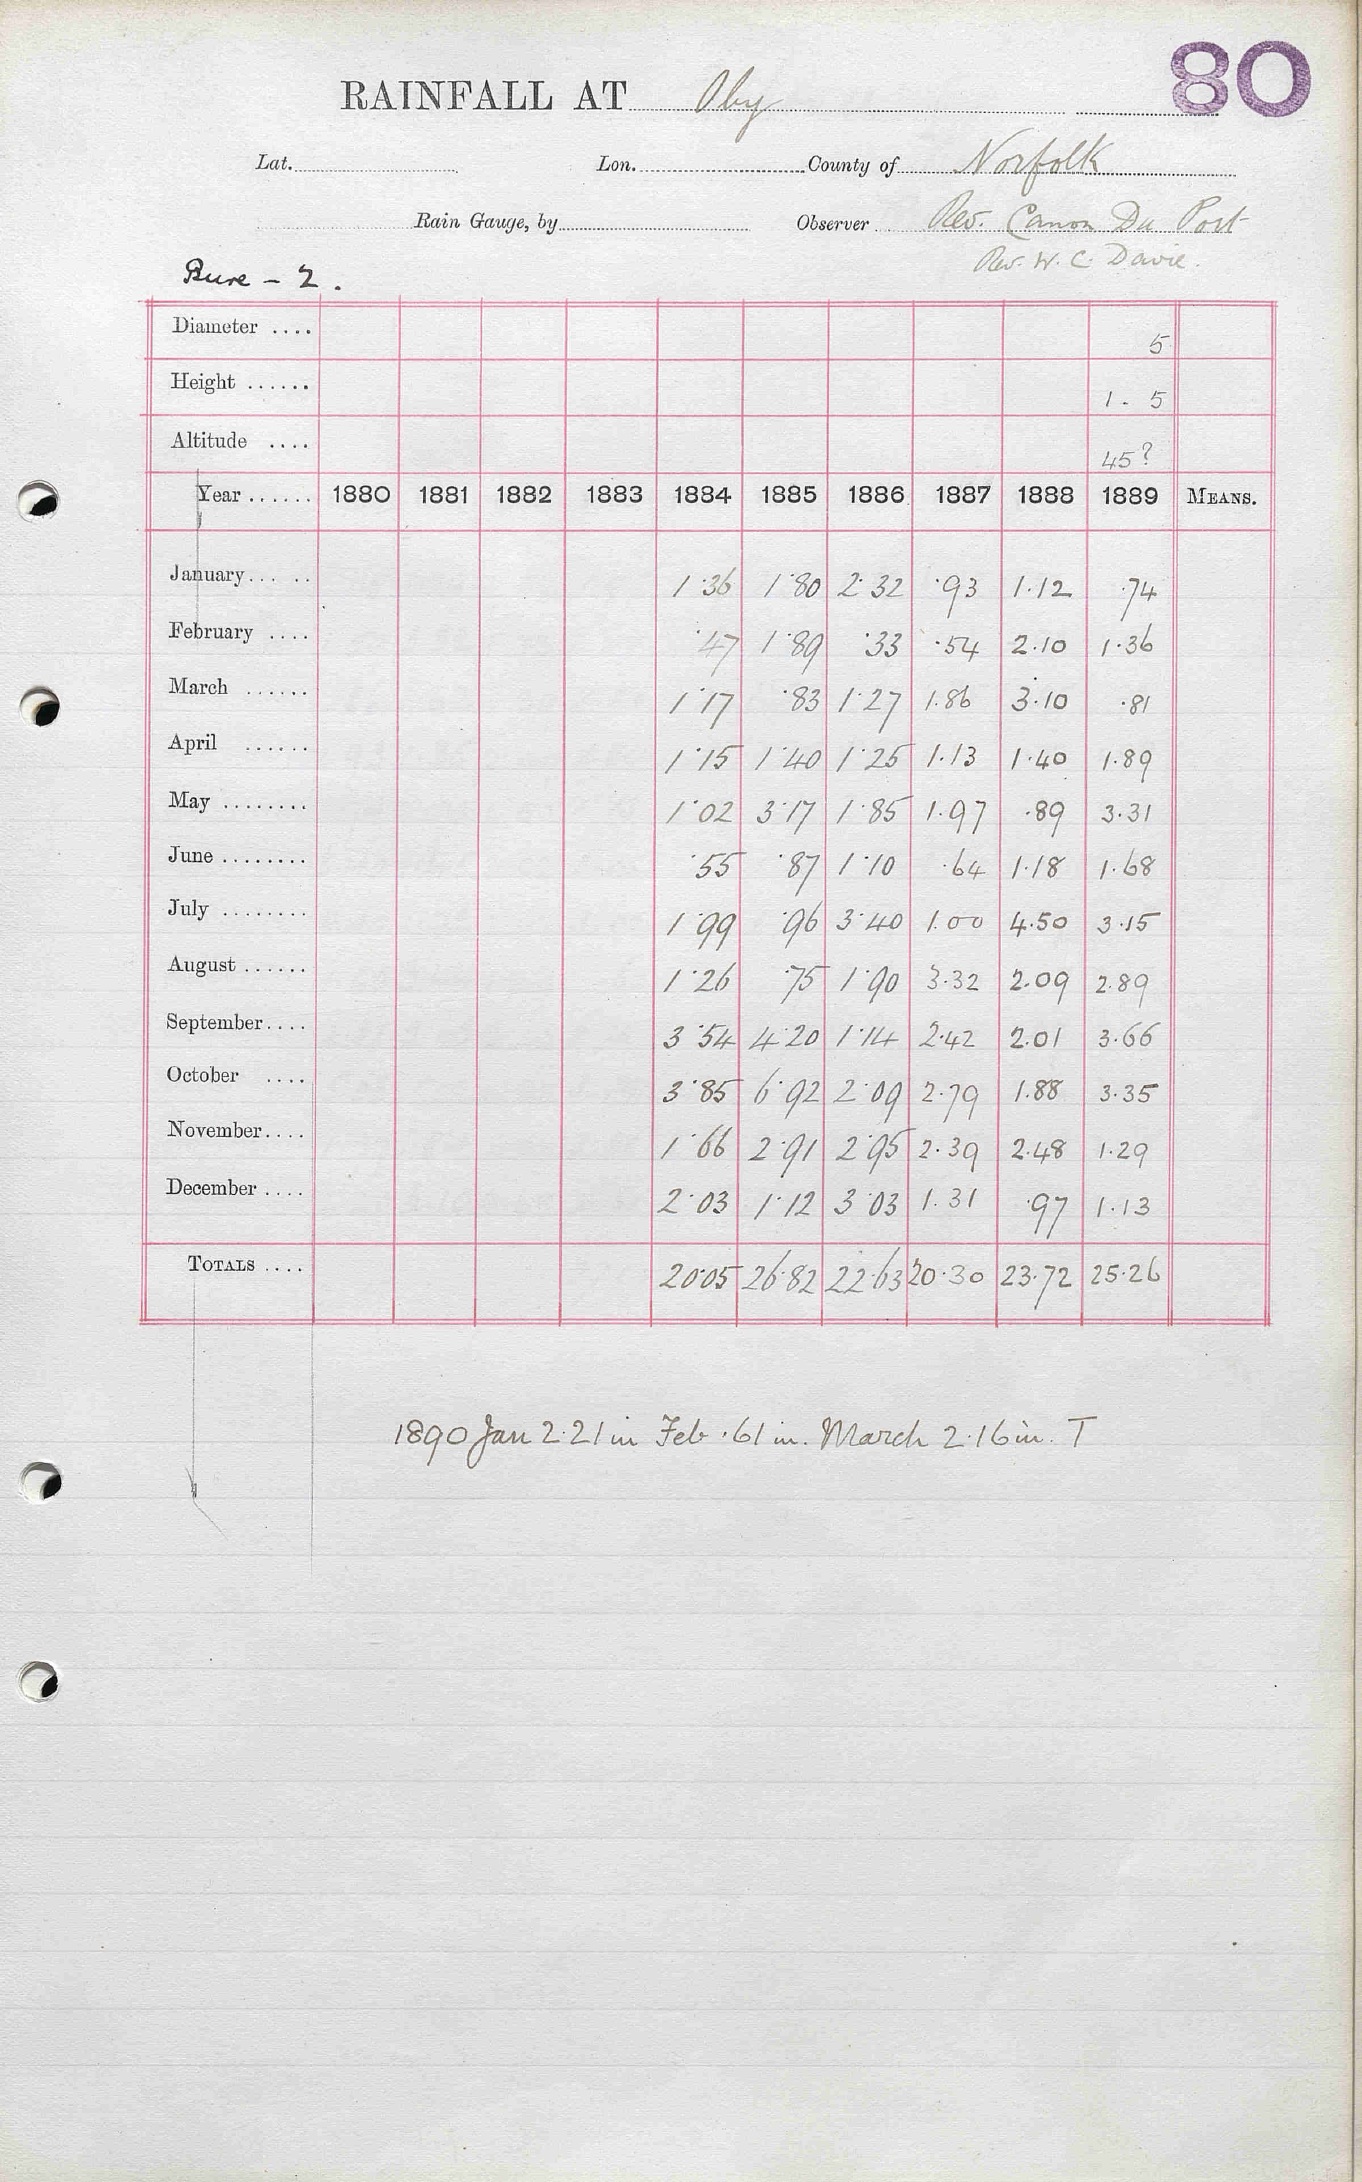 80
RAINFALL AT Oby
Lat. Lon. County of Norfolk
Rain Gauge, by Observer Rev. Canon Du Port
Rev. W. C. Davie.
Bure - 2.
Diameter .... 5
Height ...... 1. 5
Altitude .... 45?
Year ...... 1880 1881 1882 1883 1884 1885 1886 1887 1888 1889 MEANS.
January ... .. 1.36 1.80 2.32 .93 1.12 .74
February .... .47 1.89 .33 .54 2.10 1.36
March ...... 1.17 .83 1.27 1.86 3.10 .81
April ...... 1.15 1.40 1.25 1.13 1.40 1.89
May ........ 1.02 3.17 1.85 1.97 .89 3.31
June ........ .55 .87 1.10 .64 1.18 1.68
July ........ 1.99 .96 3.40 1.00 4.50 3.15
August ...... 1.26 .75 1.90 3.32 2.09 2.89
September .... 3.54 4.20 1.14 2.42 2.01 3.66
October .... 3.85 6.92 2.09 2.79 1.88 3.35
November .... 1.66 2.91 2.95 2.39 2.48 1.29
December .... 2.03 1.12 3.03 1.31 .97 1.13
TOTALS .... 20.05 26.82 22.63 20.30 23.72 25.26
1890 Jan 2.21 in Feb .61 in. March 2.16 in. T